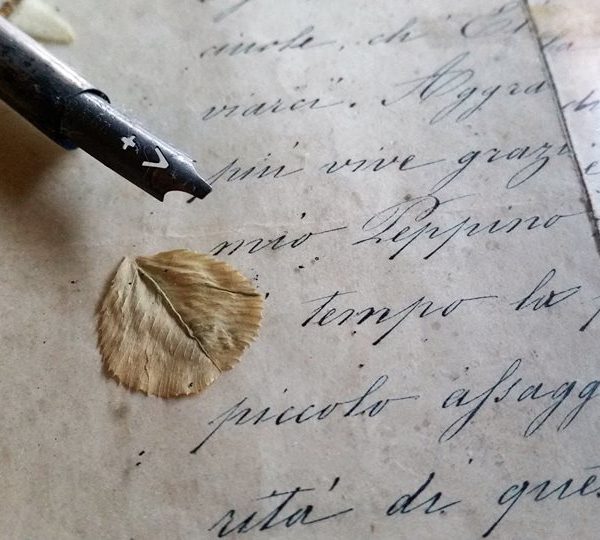 ciuole, ch' E
viarci. Aggra
più vive grazie
mio Peppino
tempo la
piccolo assagg
rità di ques
+ V